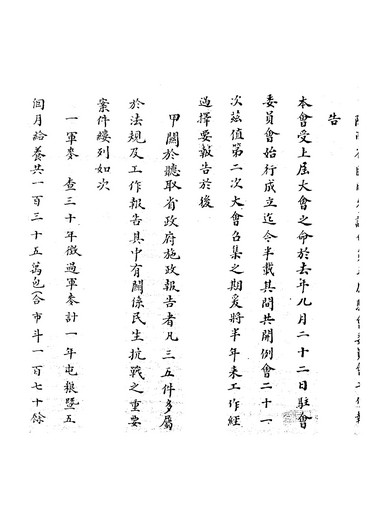 告
本會受上屆大會之命於去年九月二十二日駐會
委員會始行成立迄今半載其間共開例會二十一
次茲值第二次大會召集之期爰將半年來工作經
過擇要報告於後
甲關於聽取省政府施政報告者凡三五件多屬
於法規及工作報告其中有關係民生抗戰之重要
案件縷列如次
一軍麥 查三十年徵過軍麥計一年屯糧暨五
個月給養共一百三十五萬包(合市斗一百七十餘